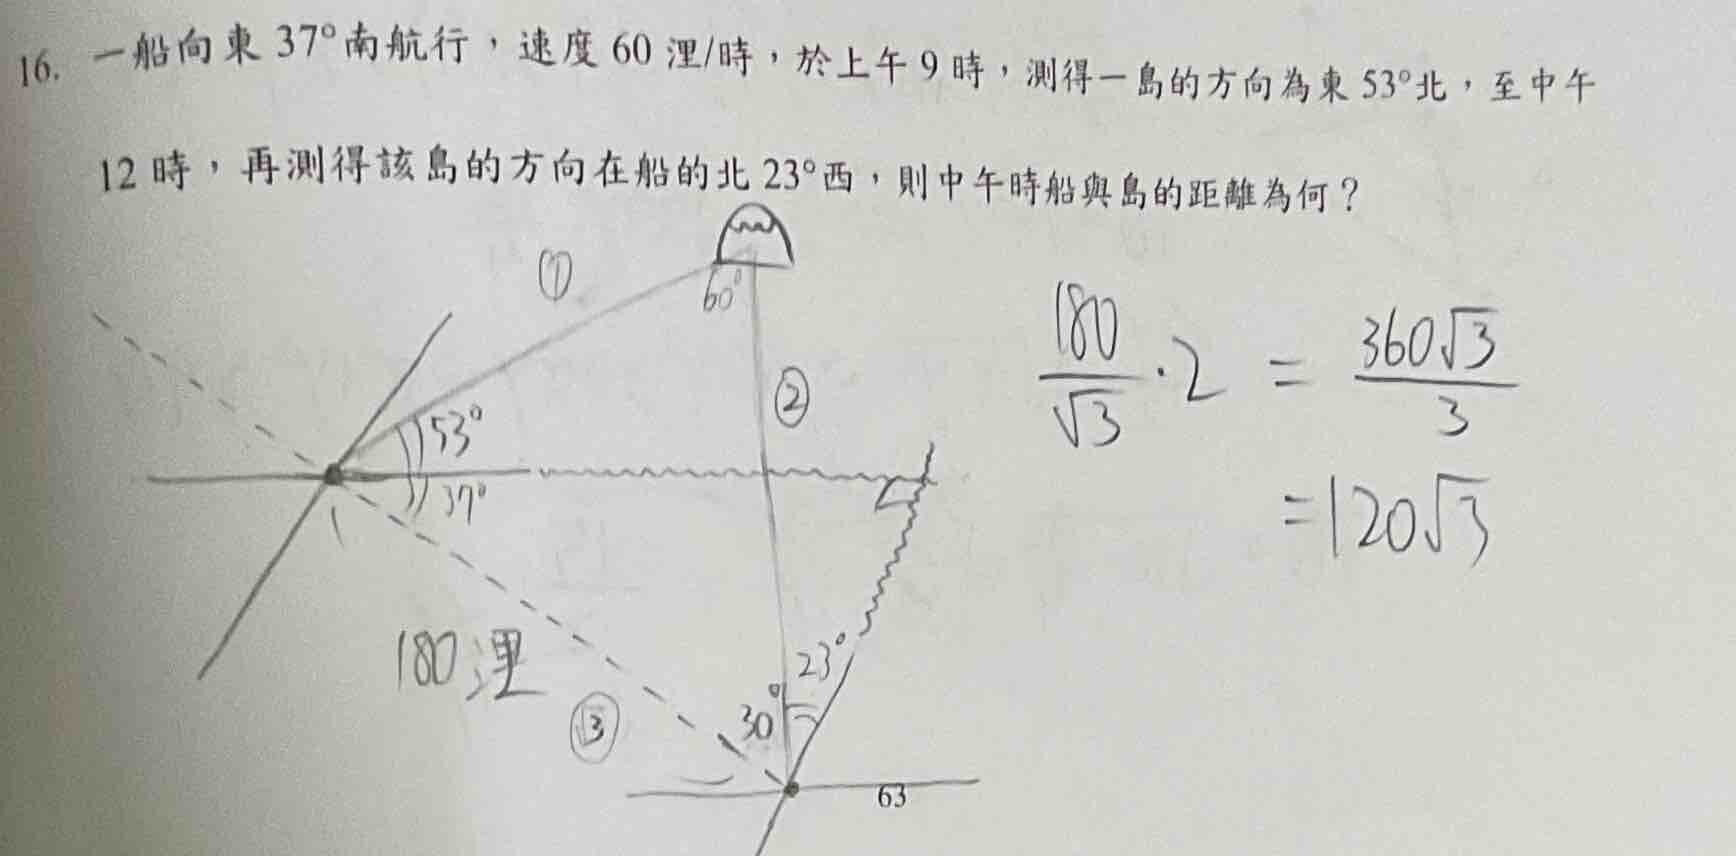 16. 一船向東 37°南航行，速度 60 浬/時，於上午 9 時，測得一島的方向為東 53°北，至中午
12 時，再測得該島的方向在船的北 23°西，則中午時船與島的距離為何？
①
60°
180/√3 · 2 = 360√3/3
②
53°
37°
= 120√3
180 浬
23°
√3
30°
63